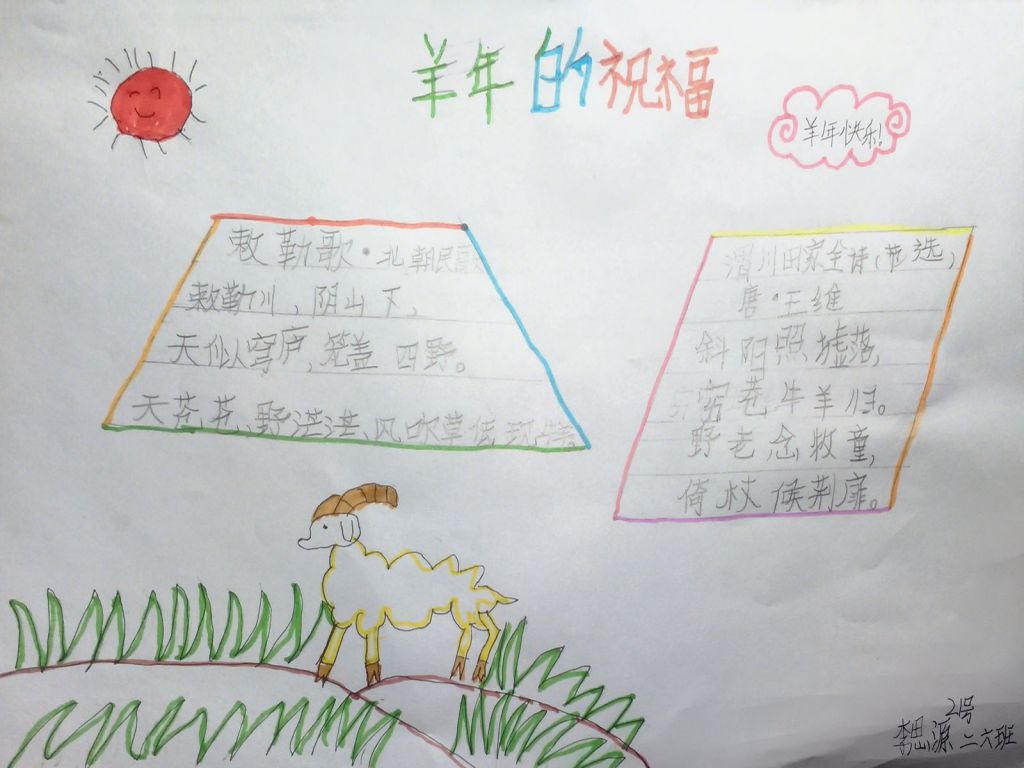 羊年的祝福
羊年快乐!
敕勒歌·北朝民歌
敕勒川,阴山下,
天似穹庐,笼盖四野。
天苍苍,野茫茫,风吹草低现
渭川田家全诗(节选)
唐·王维
斜阳照墟落,
穷巷牛羊归。
野老念牧童,
倚杖候荆扉。
2号
李思源二六班